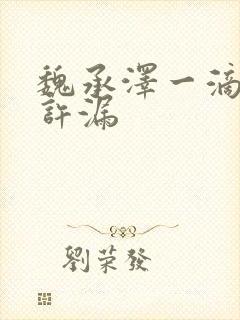 魏承澤一滴
許漏
劉榮發